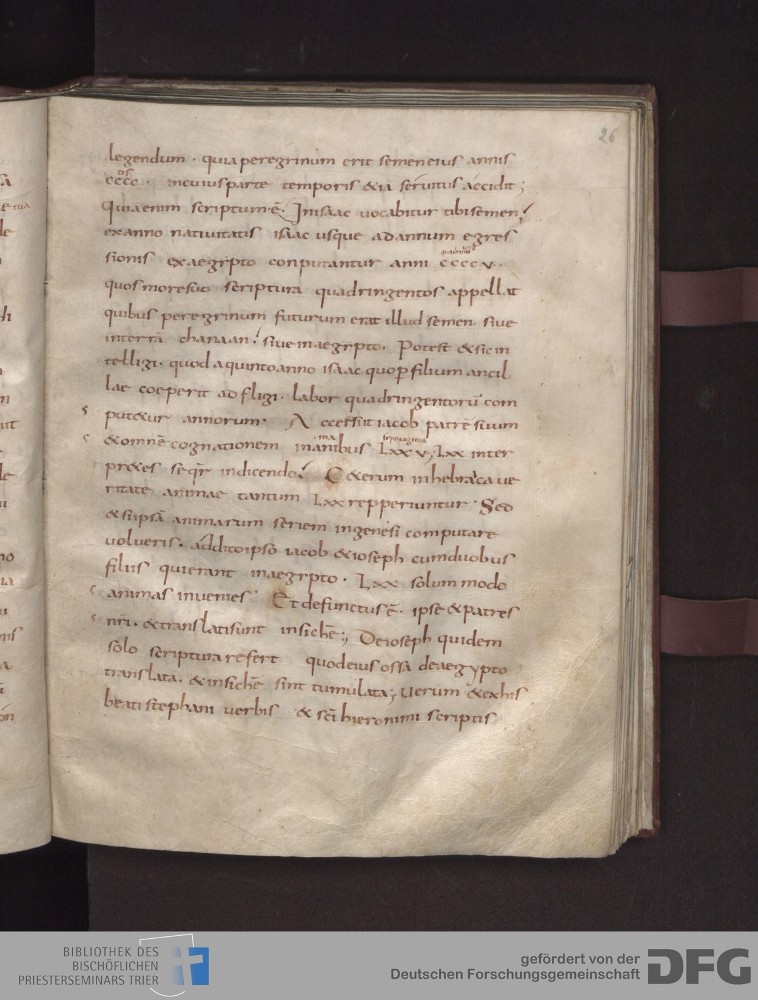 26
legendum · quia peregrinum erit semen eius annis
os
cccc · in cuius parte temporis &iā seruitus accidit ;
Quia enim scriptum ē. In isaac uocabitur tibi semen.
ex anno natiuitatis isaac usque ad annum egres
sionis ex aegypto conputantur anni cccc v ·
quos more suo scriptura quadringentos appellat
quibus peregrinum futurum erat illud semen · siue
in terrā chanaan · siue in aegypto · Potest & sic in
tellegi · quod a quinto anno isaac quo p filium ancil
lae coeperit adfligi · labor quadringentorū com
put&ur annorum · Accersiit iacob patrē suum
ma septuaginta
& omnē cognationem in animibus Lxxv ; Lxx inter
pr&es seqr̄ in dicendo · C&erum in hebraica ue
ritate animae tantum Lxx repperiuntur · Sed
& si ipsā animarum seriem in genesi computare
uolueris · addito ipso iacob & ioseph cum duobus
filiis qui erant in aegypto · Lxx solum modo
animas inuenies Et defunctus ē · ipse & patres
nr̄i · & translati sunt in sichē ; De ioseph quidem
solo scriptura refert quod eius ossa de aegypto
translata · & in sichē sint tumulata ; uerum & ex his
beati stephani uerbis & sc̄i hieronimi scriptis
BIBLIOTHEK DES
BISCHÖFLICHEN
PRIESTERSEMINARS TRIER
gefördert von der
Deutschen Forschungsgemeinschaft
DFG